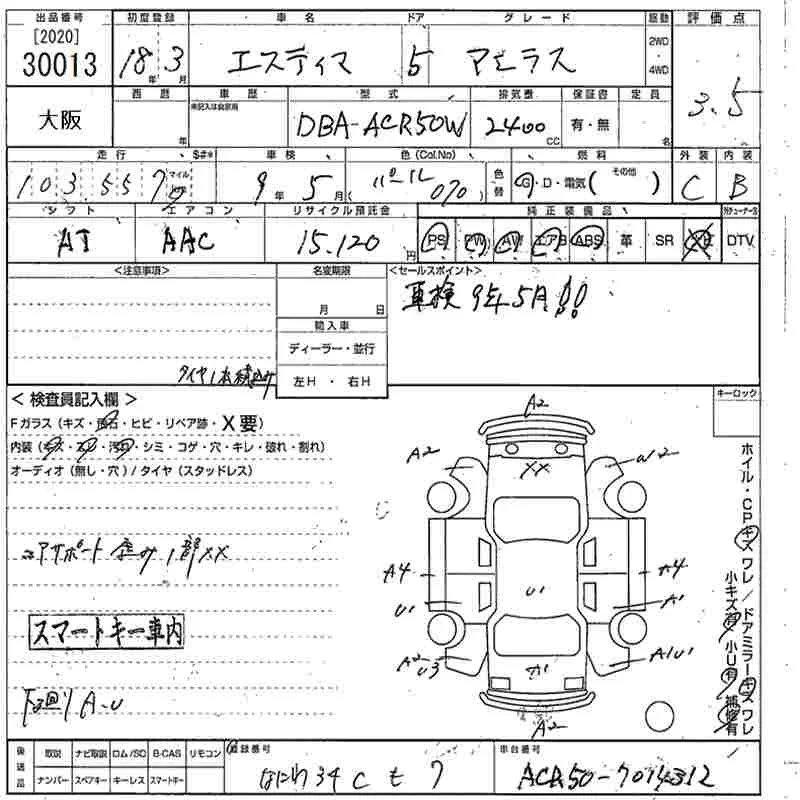 出品番号 初度登録 車名 ドア グレード 駆動 評価点
[2020]
30013 18年 3月 エスティマ 5 アエラス 2WD・4WD 3.5
大阪 西暦 年 車歴 未記入は自家用 型式 DBA-ACR50W 排気量 2400 CC 保証書 有・無 定員 名
走行 103,557 マイル $#* 車検 9年 5月 色(Col.No) パール (070) 色替 燃料 G・D・電気(その他) 外装 C 内装 B
シフト AT エアコン AAC リサイクル預託金 15,120円 純正装備品 PS PW AW エアB ABS 革 SR DTV
<注意事項> 名変期限 月 日 <セールスポイント>
車検 9年5月!!
輸入車
ディーラー・並行
左H・右H
タイヤ1本
<検査員記入欄> キーロック
Fガラス(キズ・飛石・ヒビ・リペア跡・X要)
内装(キズ・スレ・汚れ・シミ・コゲ・穴・キレ・破れ・割れ)
オーディオ(無し・穴)/タイヤ(スタッドレス)
コアサポート 歪み 1部XX
スマートキー車内
下回り A・U
A2
A2 XX W2
A4 A4
U1 U1 A1
A2 U3 A1 A1U1
A2
ホイル・CPキズ ワレ/ドアミラーキズ ワレ
小キズ有 小U有 補修有
後送品 取説 ナビ取説 ロム/SD B-CAS リモコン
ナンバー スペアキー キーレス スマートキー
登録番号 なにわ 34 車台番号 ACR50-7014312